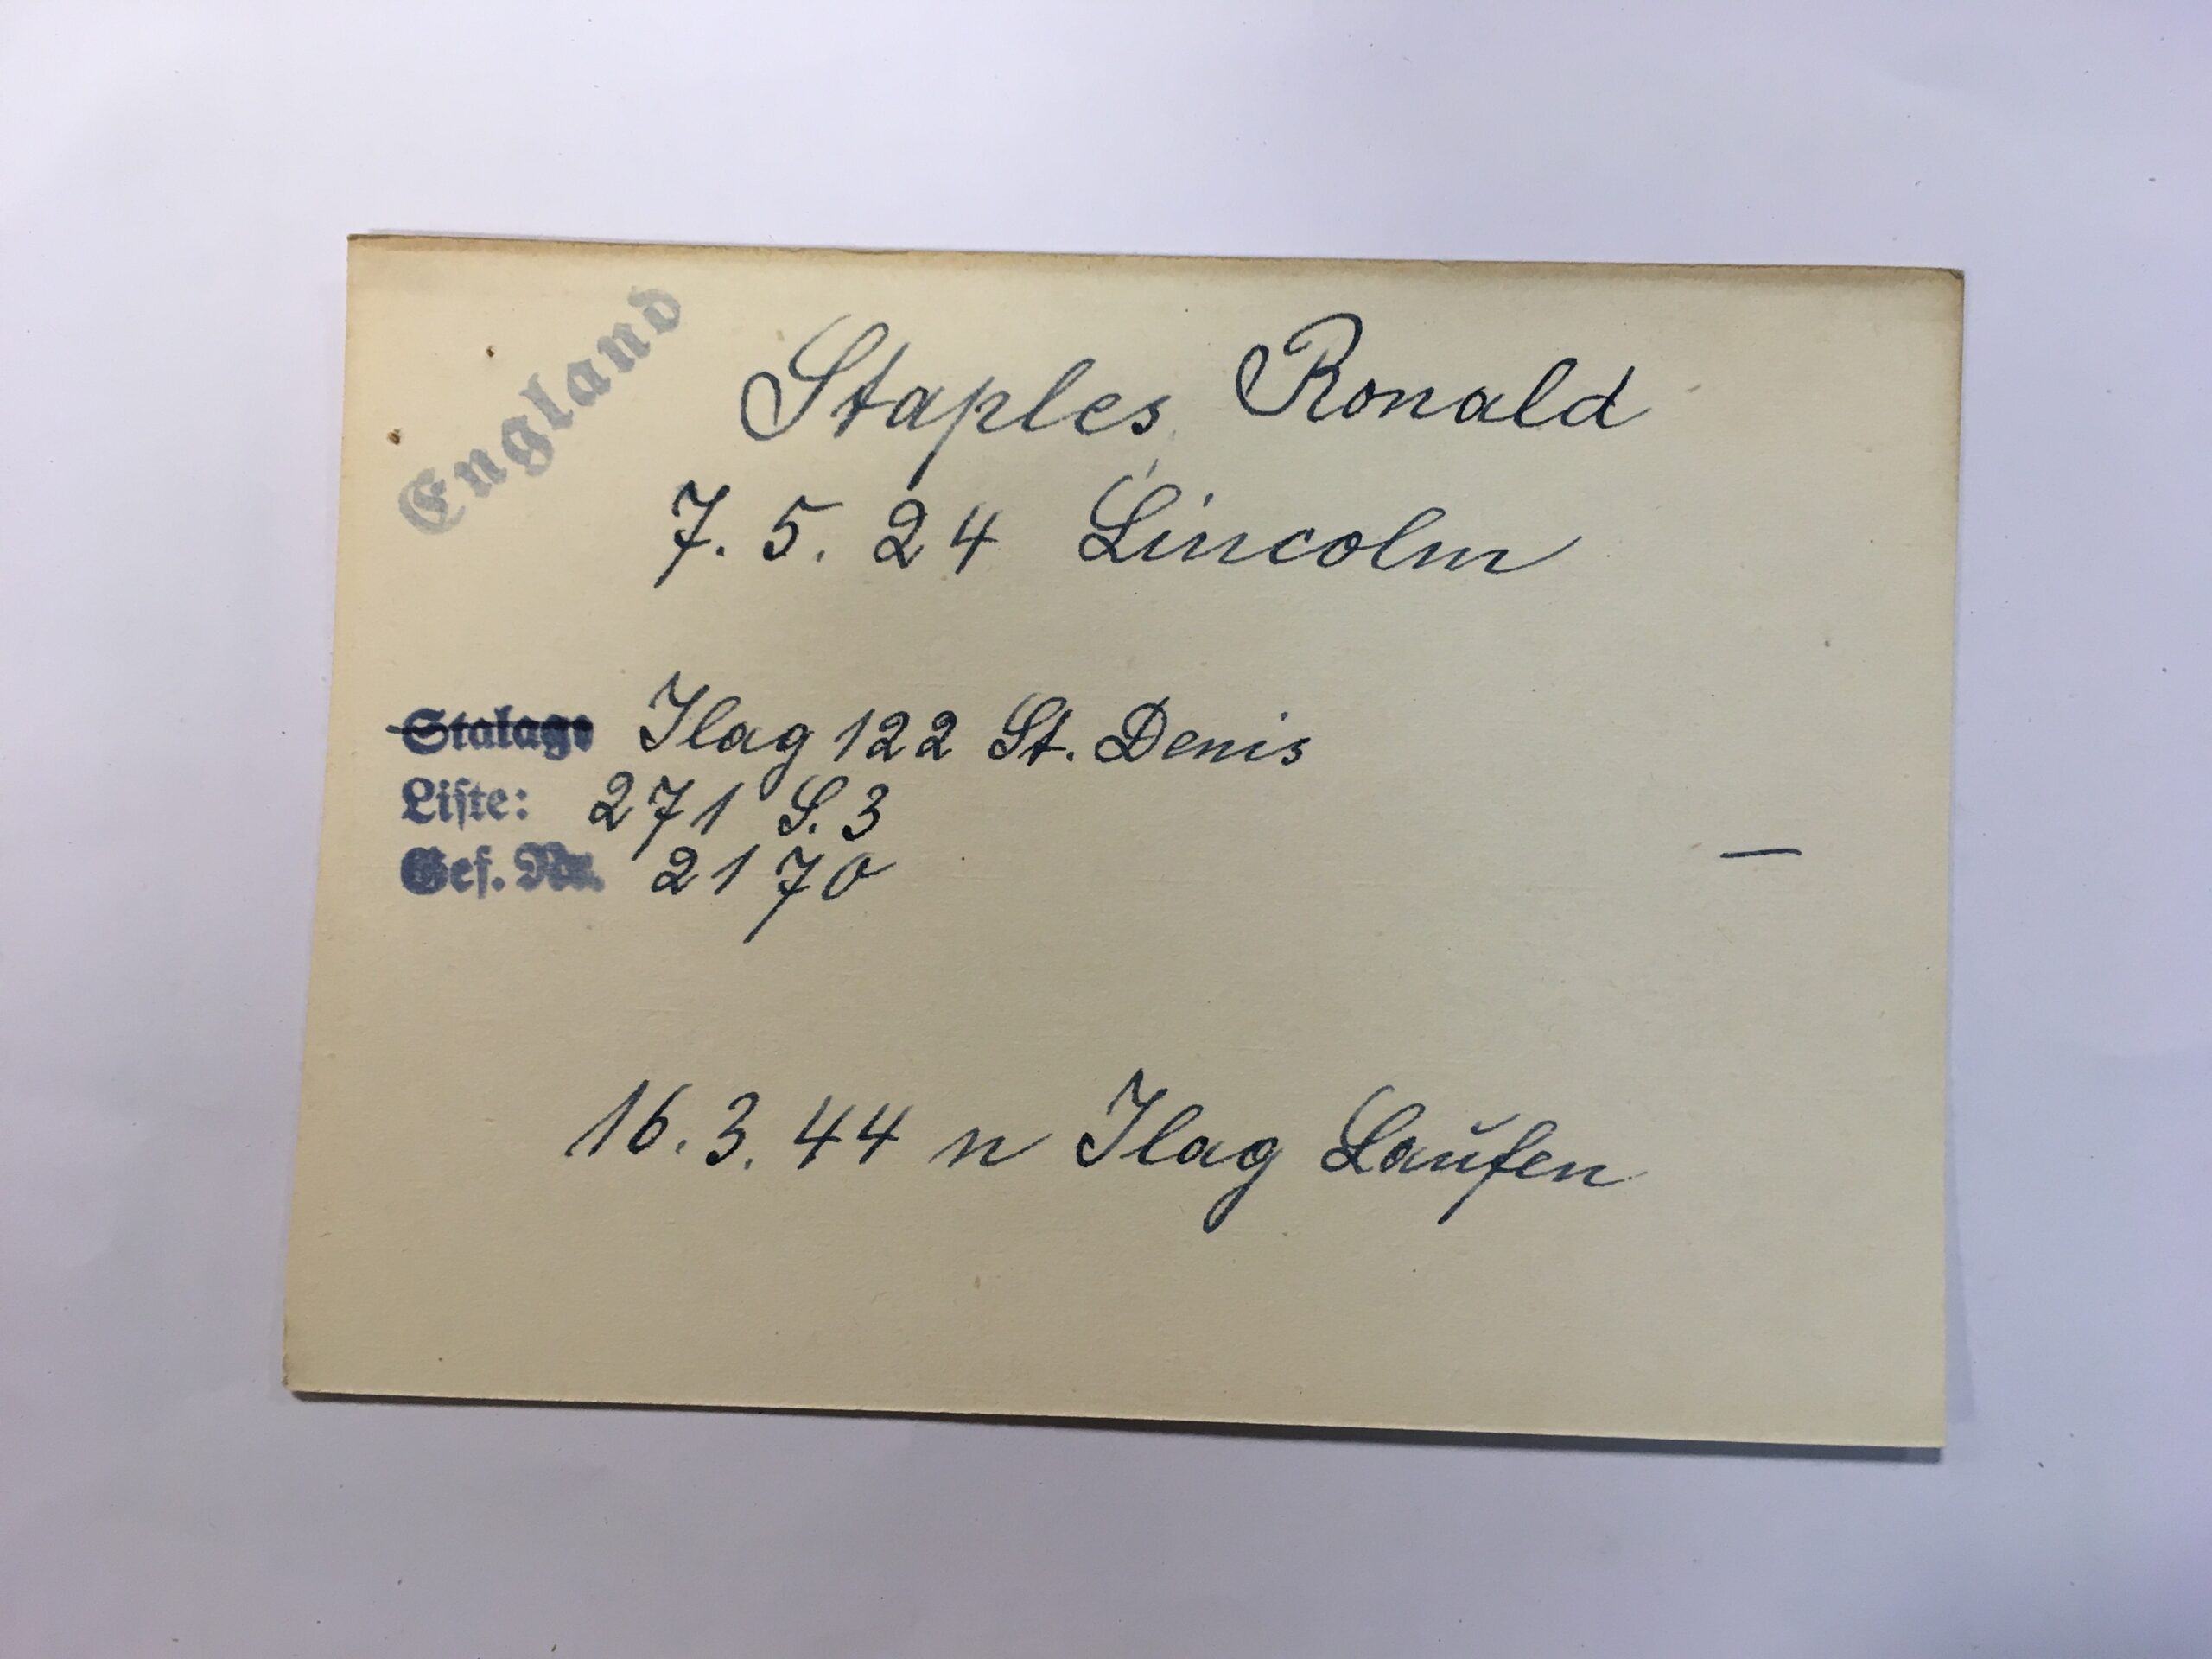 England
Staples, Ronald
7. 5. 24 Lincolm
Stalag: Ilag 122 St. Denis
Liste: 271 S. 3
Gef. Nr. 2170
16. 3. 44 n Ilag Laufen